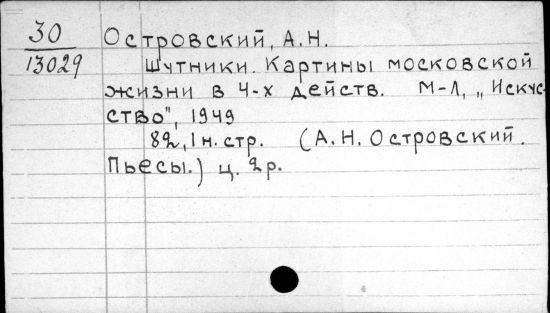 30
13029
Островский, А.Н.
Шутники. Картины московской
жизни в 4-х действ. М-Л, „Искус-
ство", 1949
82, 1 н. стр. (А.Н. Островский.
Пьесы.) ц. 2 р.